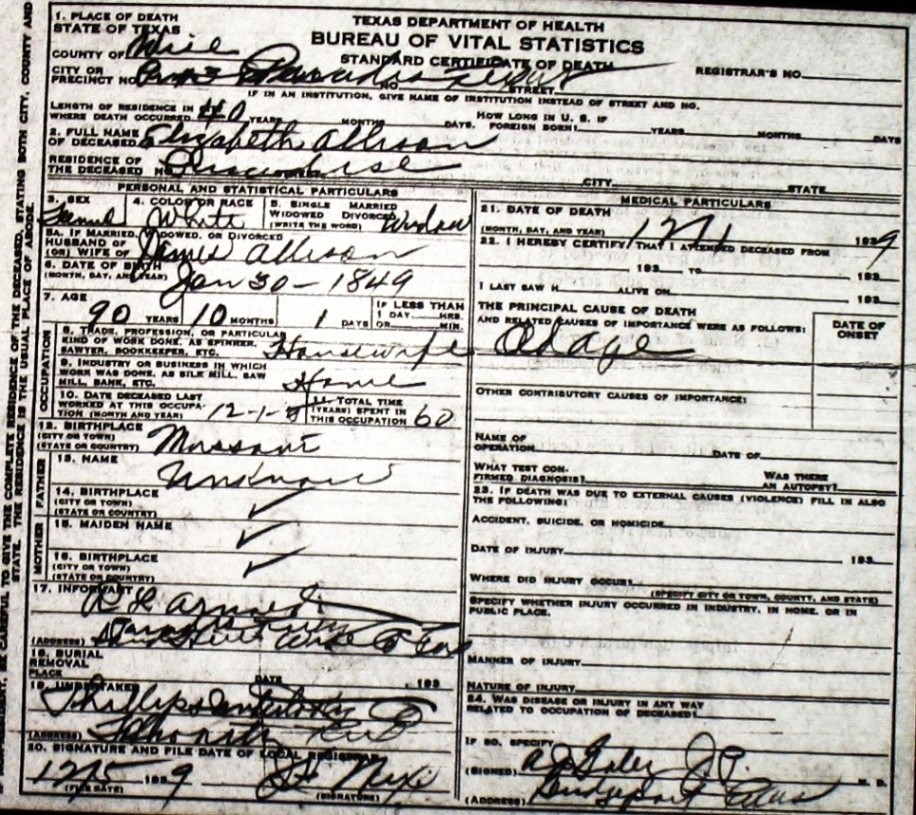 TEXAS DEPARTMENT OF HEALTH
BUREAU OF VITAL STATISTICS
STANDARD CERTIFICATE OF DEATH
1. PLACE OF DEATH
STATE OF TEXAS
COUNTY OF Wise
REGISTRAR'S NO.
CITY OR
PRECINCT NO. NO. STREET
IF IN AN INSTITUTION, GIVE NAME OF INSTITUTION INSTEAD OF STREET AND NO.
LENGTH OF RESIDENCE IN
WHERE DEATH OCCURRED 40 YEARS MONTHS DAYS. HOW LONG IN U. S. IF
FOREIGN BORN? YEARS MONTHS DAYS
2. FULL NAME
OF DECEASED Elizabeth Allison
RESIDENCE OF
THE DECEASED NO. CITY STATE
PERSONAL AND STATISTICAL PARTICULARS
3. SEX Female
4. COLOR OR RACE White
5. SINGLE MARRIED
WIDOWED DIVORCED
(WRITE THE WORD) Widow
5A. IF MARRIED, WIDOWED, OR DIVORCED
HUSBAND OF
(OR) WIFE OF James Allison
6. DATE OF BIRTH
(MONTH, DAY, AND YEAR) Jan 30 - 1849
7. AGE
90 YEARS 10 MONTHS 1 DAYS
IF LESS THAN
1 DAY HRS.
OR MIN.
OCCUPATION
8. TRADE, PROFESSION, OR PARTICULAR
KIND OF WORK DONE, AS SPINNER,
SAWYER, BOOKKEEPER, ETC. Housewife
9. INDUSTRY OR BUSINESS IN WHICH
WORK WAS DONE, AS SILK MILL, SAW
MILL, BANK, ETC. Home
10. DATE DECEASED LAST
WORKED AT THIS OCCUPA-
TION (MONTH AND YEAR) 12-1-
11. TOTAL TIME
(YEARS) SPENT IN
THIS OCCUPATION 60
12. BIRTHPLACE
(CITY OR TOWN)
(STATE OR COUNTRY)
FATHER
13. NAME Unknown
14. BIRTHPLACE
(CITY OR TOWN)
(STATE OR COUNTRY) ✓
MOTHER
15. MAIDEN NAME ✓
16. BIRTHPLACE
(CITY OR TOWN)
(STATE OR COUNTRY) ✓
17. INFORMANT
(ADDRESS)
18. BURIAL
REMOVAL
PLACE DATE 193
19. UNDERTAKER
(ADDRESS)
20. SIGNATURE AND FILE DATE OF LOCAL REGISTRAR
(FILE DATE) (SIGNATURE)
MEDICAL PARTICULARS
21. DATE OF DEATH
(MONTH, DAY, AND YEAR) 1939
22. I HEREBY CERTIFY THAT I ATTENDED DECEASED FROM
193 , TO 193
I LAST SAW H ALIVE ON 193
THE PRINCIPAL CAUSE OF DEATH
AND RELATED CAUSES OF IMPORTANCE WERE AS FOLLOWS:
DATE OF
ONSET
Old Age
OTHER CONTRIBUTORY CAUSES OF IMPORTANCE:
NAME OF
OPERATION DATE OF
WHAT TEST CON-
FIRMED DIAGNOSIS? WAS THERE
AN AUTOPSY?
23. IF DEATH WAS DUE TO EXTERNAL CAUSES (VIOLENCE) FILL IN ALSO
THE FOLLOWING:
ACCIDENT, SUICIDE, OR HOMICIDE
DATE OF INJURY 193
WHERE DID INJURY OCCUR?
(SPECIFY CITY OR TOWN, COUNTY, AND STATE)
SPECIFY WHETHER INJURY OCCURRED IN INDUSTRY, IN HOME, OR IN
PUBLIC PLACE.
MANNER OF INJURY
NATURE OF INJURY
24. WAS DISEASE OR INJURY IN ANY WAY
RELATED TO OCCUPATION OF DECEASED?
IF SO, SPECIFY
(SIGNED) J.P. M. D.
(ADDRESS) Bridgeport Texas